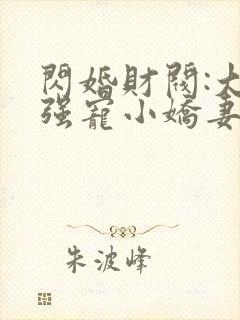 閃婚財閥:大
强寵小嬌妻
朱波峰